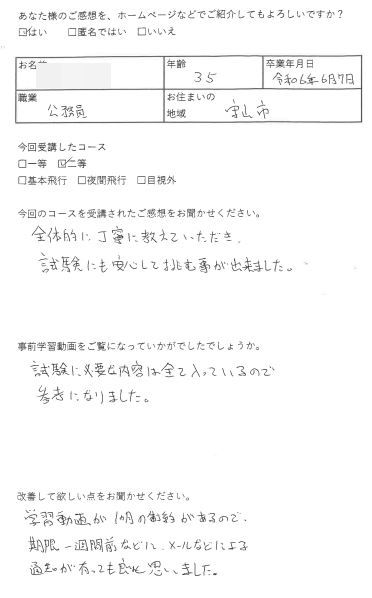 あなた様のご感想を、ホームページなどでご紹介してもよろしいですか？
☑はい　□匿名ではい　□いいえ
お名前　年齢　卒業年月日
35　令和6年6月7日
職業　お住まいの
地域
公務員　守山市
今回受講したコース
□一等　☑二等
□基本飛行　□夜間飛行　□目視外
今回のコースを受講されたご感想をお聞かせください。
全体的に丁寧に教えていただき、
試験にも安心して挑む事が出来ました。
事前学習動画をご覧になっていかがでしたでしょうか。
試験に必要な内容は全て入っているので
参考になりました。
改善して欲しい点をお聞かせください。
学習動画が1ヶ月の制約があるので、
期限一週間前などに、メールなどによる
通知が有っても良いと思いました。